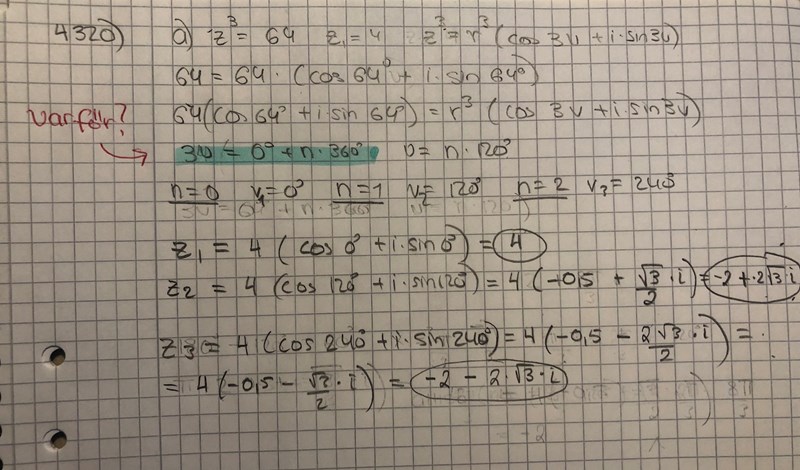 4320) a) z³ = 64 z₁ = 4 z³ = r³ (cos 3v + i·sin 3v)
64 = 64 · (cos 64° + i·sin 64°)
64(cos 64° + i·sin 64°) = r³ (cos 3v + i·sin 3v)
Varför?
3v = 0° + n·360° v = n·120°
n=0 v₁=0° n=1 v₂= 120° n=2 v₃= 240°
z₁ = 4 (cos 0° + i·sin 0°) = 4
z₂ = 4 (cos 120° + i·sin 120°) = 4 (-0,5 + √3/2 · i) = -2 + 2√3 i
z₃ = 4 (cos 240° + i·sin 240°) = 4 (-0,5 - 2√3/2 · i) =
= 4 (-0,5 - √3/2 · i) = -2 - 2·√3·i